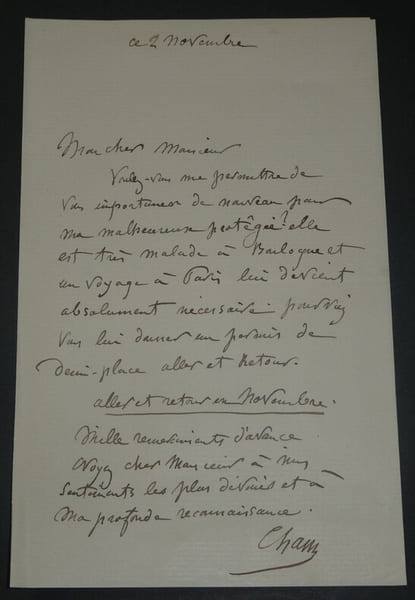 ce 2 Novembre
Mon cher Monsieur
Voulez-vous me permettre de
vous importuner de nouveau pour
ma malheureuse protégée? elle
est très malade à Boulogne et
un voyage à Paris lui devient
absolument nécessaire. pourriez
vous lui donner un permis de
demi-place aller et Retour.
aller et retour en Novembre.
Mille remerciments d'avance
Croyez cher Monsieur à mes
sentiments les plus dévoués et à
Ma profonde reconnaissance.
Cham